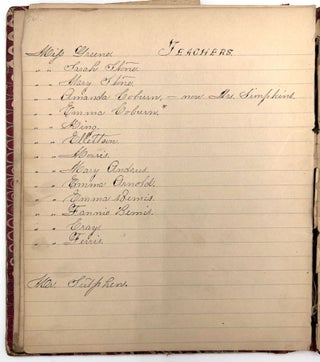 Teachers.
Miss Greene
" " Sarah Stone
" " Mary Stone
" " Amanda Coburn, – now Mrs. Simpkins
" " Emma Coburn "
" " King
" " Ellettson
" " Morris
" " Mary Andrus
" " Emma Arnold
" " Emma Bemis
" " Fannie Bemis
" " Crays
" " Ferris
Mr Sutphen.